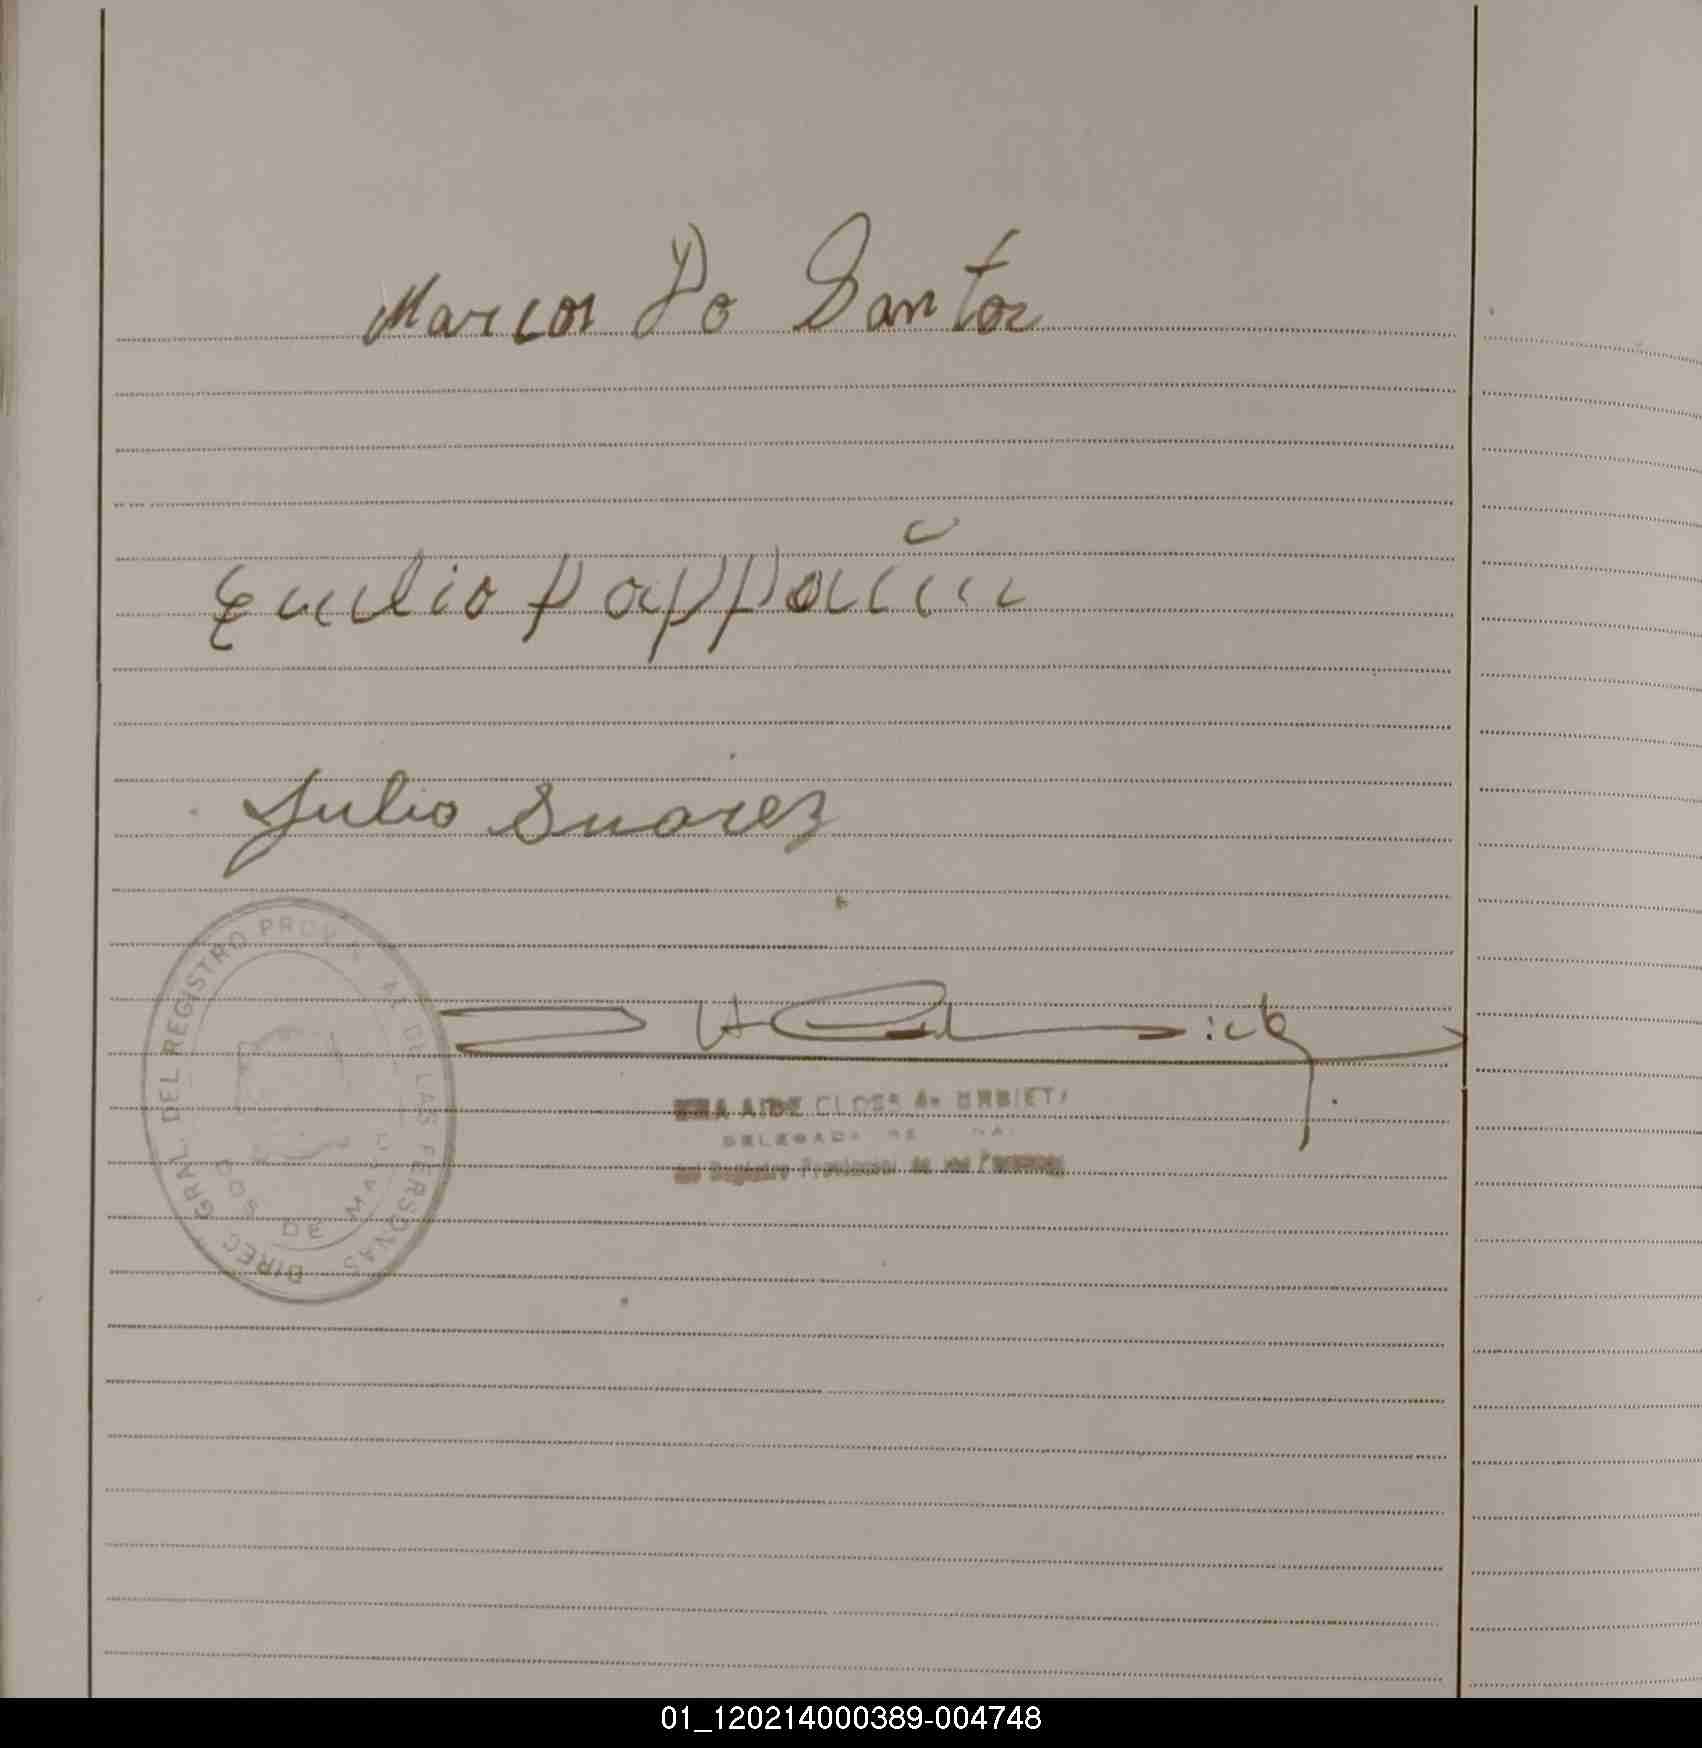 Marcos Do Santos
Emilio
Julio Suarez
DIREC. GRAL. DEL REGISTRO PROV. DE LAS PERSONAS
DOS DE MAYO
CLOSS de URBIETA
DELEGADA
del Registro Provincial de las Personas
01_120214000389-004748